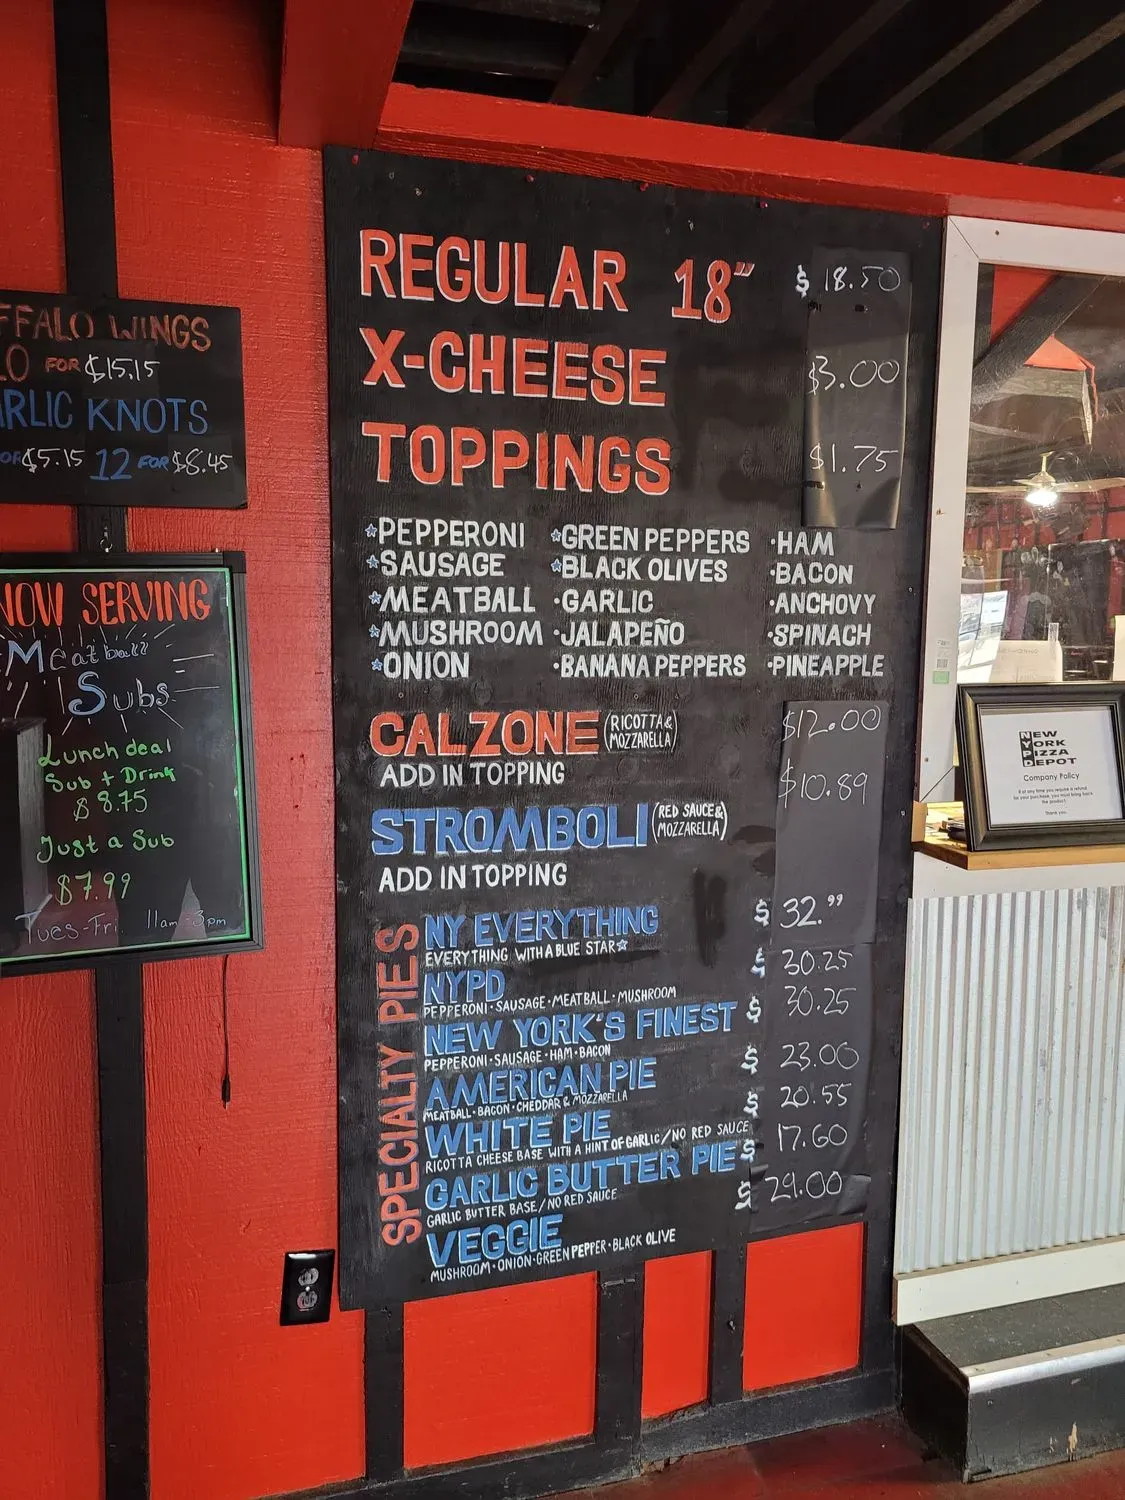 FFALO WINGS
FOR $15.15
RLIC KNOTS
$5.15 12 FOR $8.45
NOW SERVING
Meatball
Subs
Lunch deal
Sub + Drink
$8.75
Just a Sub
$7.99
Tues-Fri 11am-3pm
REGULAR 18" $18.50
X-CHEESE $3.00
TOPPINGS $1.75
PEPPERONI
SAUSAGE
MEATBALL
MUSHROOM
ONION
GREEN PEPPERS
BLACK OLIVES
·GARLIC
·JALAPEÑO
·BANANA PEPPERS
·HAM
·BACON
·ANCHOVY
·SPINACH
·PINEAPPLE
CALZONE (RICOTTA & MOZZARELLA) $12.00
ADD IN TOPPING $10.89
STROMBOLI (RED SAUCE & MOZZARELLA)
ADD IN TOPPING
SPECIALTY PIES
NY EVERYTHING $32.99
EVERYTHING WITH A BLUE STAR
NYPD $30.25
PEPPERONI·SAUSAGE·MEATBALL·MUSHROOM
NEW YORK'S FINEST $30.25
PEPPERONI·SAUSAGE·HAM·BACON
AMERICAN PIE $23.00
MEATBALL·BACON·CHEDDAR & MOZZARELLA
WHITE PIE $20.55
RICOTTA CHEESE BASE WITH A HINT OF GARLIC/NO RED SAUCE
GARLIC BUTTER PIE $17.60
GARLIC BUTTER BASE/NO RED SAUCE
VEGGIE $29.00
MUSHROOM·ONION·GREEN PEPPER·BLACK OLIVE
NEW
YORK
PIZZA
DEPOT
Company Policy
If at any time you require a refund
for your purchase, you must bring back
the product.
Thank you.